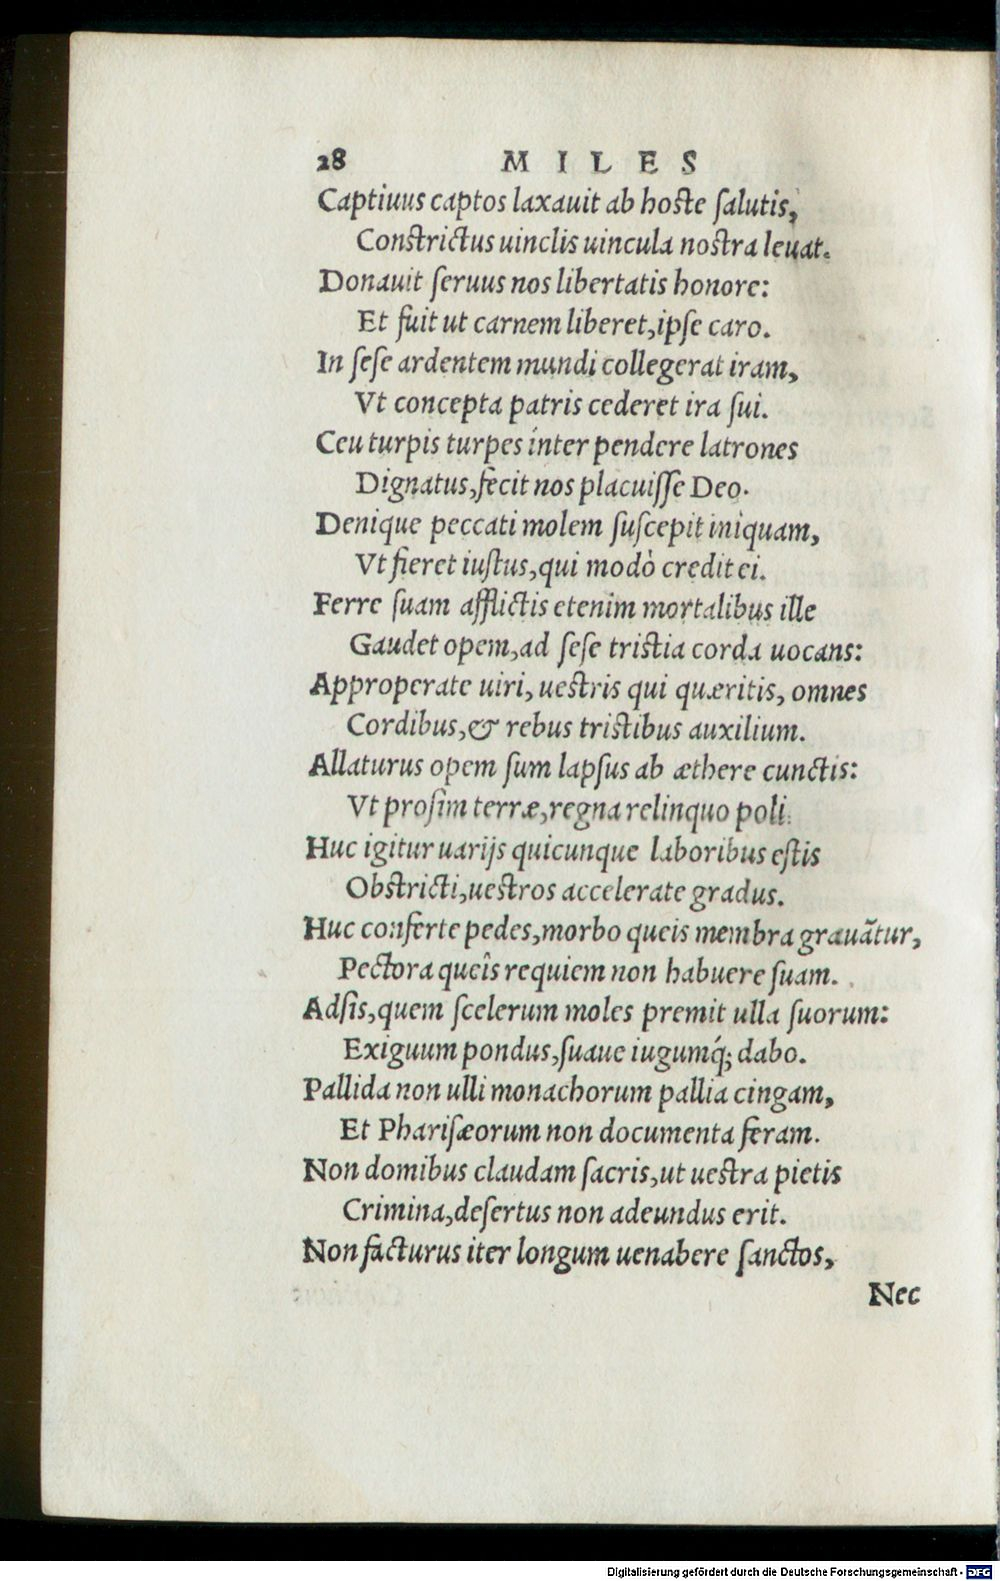 28 MILES
Captiuus captos laxauit ab hoste ſalutis,
Constrictus uinclis uincula nostra leuat.
Donauit ſeruus nos libertatis honore:
Et fuit ut carnem liberet, ipſe caro.
In ſeſe ardentem mundi collegerat iram,
Vt concepta patris cederet ira ſui.
Ceu turpis turpes inter pendere latrones
Dignatus, fecit nos placuiſſe Deo.
Denique peccati molem ſuſcepit iniquam,
Vt fieret iuſtus, qui modò credit ei.
Ferre ſuam afflictis etenim mortalibus ille
Gaudet opem, ad ſeſe tristia corda uocans:
Approperate uiri, uestris qui quæritis, omnes
Cordibus, & rebus tristibus auxilium.
Allaturus opem ſum lapſus ab æthere cunctis:
Vt proſim terræ, regna relinquo poli.
Huc igitur uarijs quicunque laboribus eſtis
Obstricti, uestros accelerate gradus.
Huc conferte pedes, morbo queis membra grauãtur,
Pectora queîs requiem non habuere ſuam.
Adſis, quem ſcelerum moles premit ulla ſuorum:
Exiguum pondus, ſuaue iugumq́; dabo.
Pallida non ulli monachorum pallia cingam,
Et Phariſæorum non documenta feram.
Non domibus claudam ſacris, ut uestra pietis
Crimina, deſertus non adeundus erit.
Non facturus iter longum uenabere ſanctos,
Nec
Digitalisierung gefördert durch die Deutsche Forschungsgemeinschaft - DFG